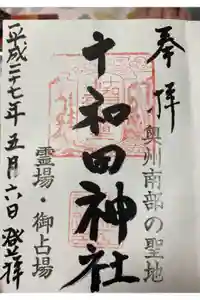 奉拝
奥州南部の聖地
十和田神社
霊場・御占場
平成二十七年五月六日登拝